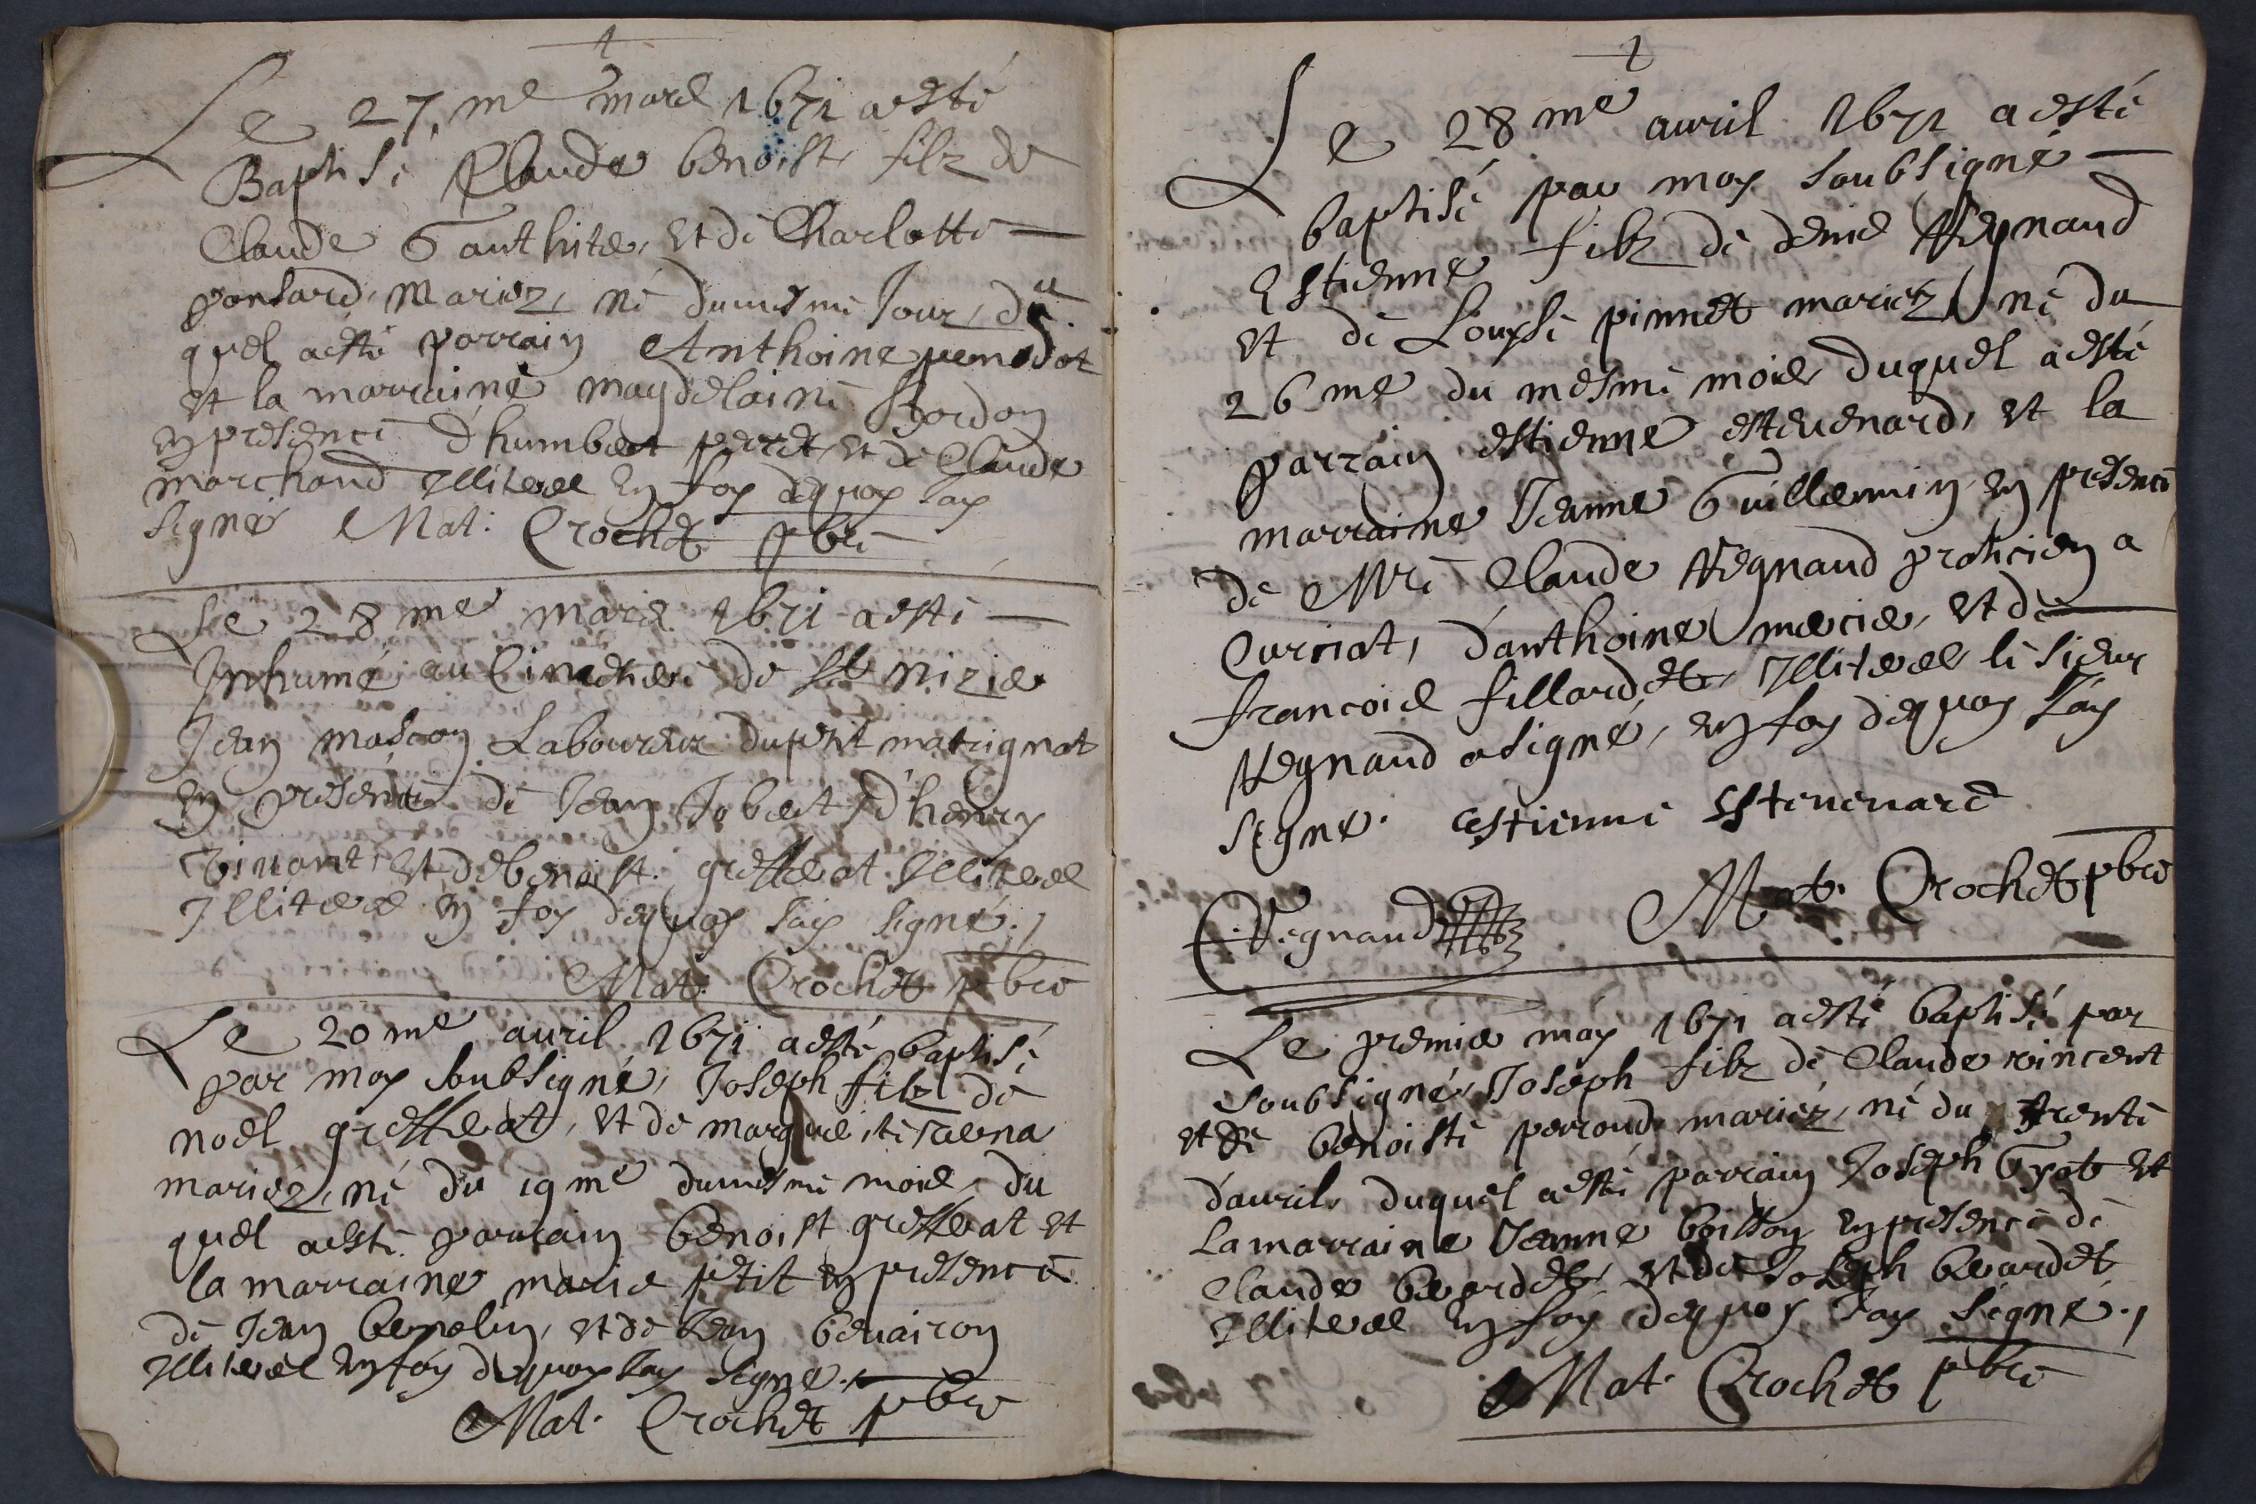 Le 27.me mars 1671 a esté
Baptisé Claude benoist filz de
Claude Gauthier, et de Charlotte
ponsard, mariez, né dumesme Jour, du
quel a esté parrain Anthoine penodot
et la marraine magdelaine
en presence d'humbert perret et de Claude
marchand Illiteres en foy dequoy Jay
signé Mat: Crochet pbre
Le 28 me mars 1671 a esté
Inhumé au Cimetiere de St nizier
Jean mascon Laboureur du petit matignat
en presence de Jean Jobert d'henry
vivant, et de benoist grefferat Illiteres
Illiteres en foy dequoy Jay signé./
Mat. Crochet pbre
Le 20 me avril 1671 a esté baptisé
par moy soubsigné, Joseph filz de
noel grefferat, et de marguerite
mariez, né du 19 me dumesme mois, du
quel a esté parrain benoist grefferat et
la marraine marie petit en presence
de Jean bernolin, et de Jean bevairon
Illiteres en foy dequoy Jay signé./
Mat. Crochet pbre
Le 28 me avril 1671 a esté
baptisé par moy soubsigné
Estienne filz de denis Regnaud
et de Louyse pinnet mariez, né du
26 me du mesme mois duquel a esté
parrain estienne estevenard, et la
marraine Jeanne Guillermin en presence
de Mre Claude Regnaud praticien a
Curciat, d'anthoine mercier, et de
francois fillardet, Illiteres le sieur
Regnaud a signé, en foy dequoy Jay
signé. estienne Estevenard
Mat. Crochet pbre
C. Regnaud
Le premier may 1671 a esté baptisé par
soubsigné, Joseph filz de Claude vincent
et de benoiste perroud mariez, né du trente
d'avril, duquel a esté parrain Joseph Gyot et
la marraine Jeanne boisson en presence de
Claude berardet, et de Joseph berardet
Illiteres en foy dequoy Jay signé./
Mat. Crochet pbre